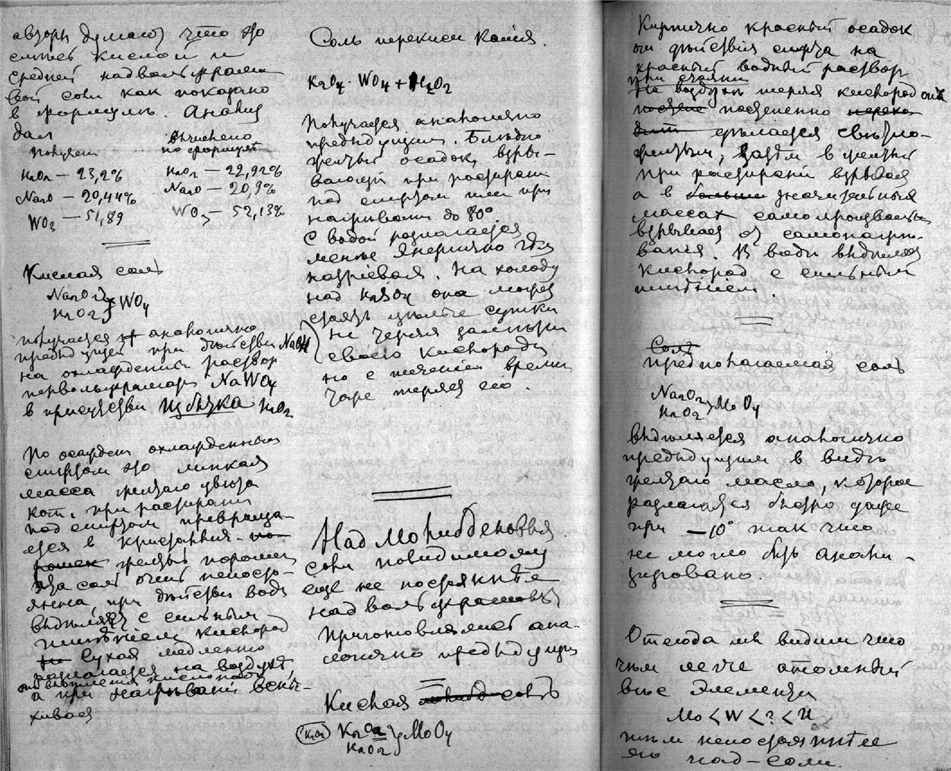 авторы думают что это
смесь кислой и
средней надвольфрамо
вой соли как показано
в формуле. Анализ
дал
Получен вычислено
по формуле
H₂O₂ — 23,2% H₂O₂ — 22,92%
Na₂O — 20,44% Na₂O — 20,9%
WO₃ — 51,89 WO₃ — 52,13%
Кислая соль
Na₂O₂ } WO₄
H₂O₂
получается аналогично
предыдущей при действии NaOH
на охлажденный раствор
первольфрамата NaWO₄
в присутствии избытка H₂O₂
По осаждении охлажденным
спиртом это липкая
масса желтого цвета
кот. при растирании
под спиртом превраща-
ется в кристаллич.
желтый порошек
Эта соль очень непосто-
янена, при действии воды
выделяет с сильным
шипением кислород
Сухая медленно
разлагается на воздухе
а при нагревании вспы-
хивает
Соль перекиси калия.
K₂O₄ · WO₄ + H₂O₂
Получается аналогично
предыдущим. Бледно
желтый осадок, взры-
вающий при растирании
под спиртом или при
нагревании до 80°.
С водой разлагается
менее энергично
нагреваясь. На холоду
над H₂SO₄ она может
стоять целые сутки
не теряя
своего кислорода
но с течением времени
теряет его.
Над молибденовыя
соли повидимому
еще не постояннее
надвольфрамовых
Приготовляются ана-
логично предыдущим
Кислая соль
K₂O₂ } MoO₄
H₂O₂
Кирпично красный осадок
от действия спирта на
красный водный раствор
при стоянии
На воздухе теряя кислород он
постепенно
делается светло-
желтым, затем в желтый
при растирании взрывая
а в значительных
массах самопроизвольно
взрывает от самонагре-
вания. В воде выделяет
кислород с сильным
шипением
предполагаемая соль
Na₂O₂ } MoO₄
H₂O₂
выделяется аналогично
предыдущим в виде
желтого масла, которое
разлагается быстро даже
при —10° так что
не могло быть анали-
зировано.
Отсюда мы видим что
чем легче атомный
вес элемента
Mo < W < ? < U
тем непостояннее
его над-соли.